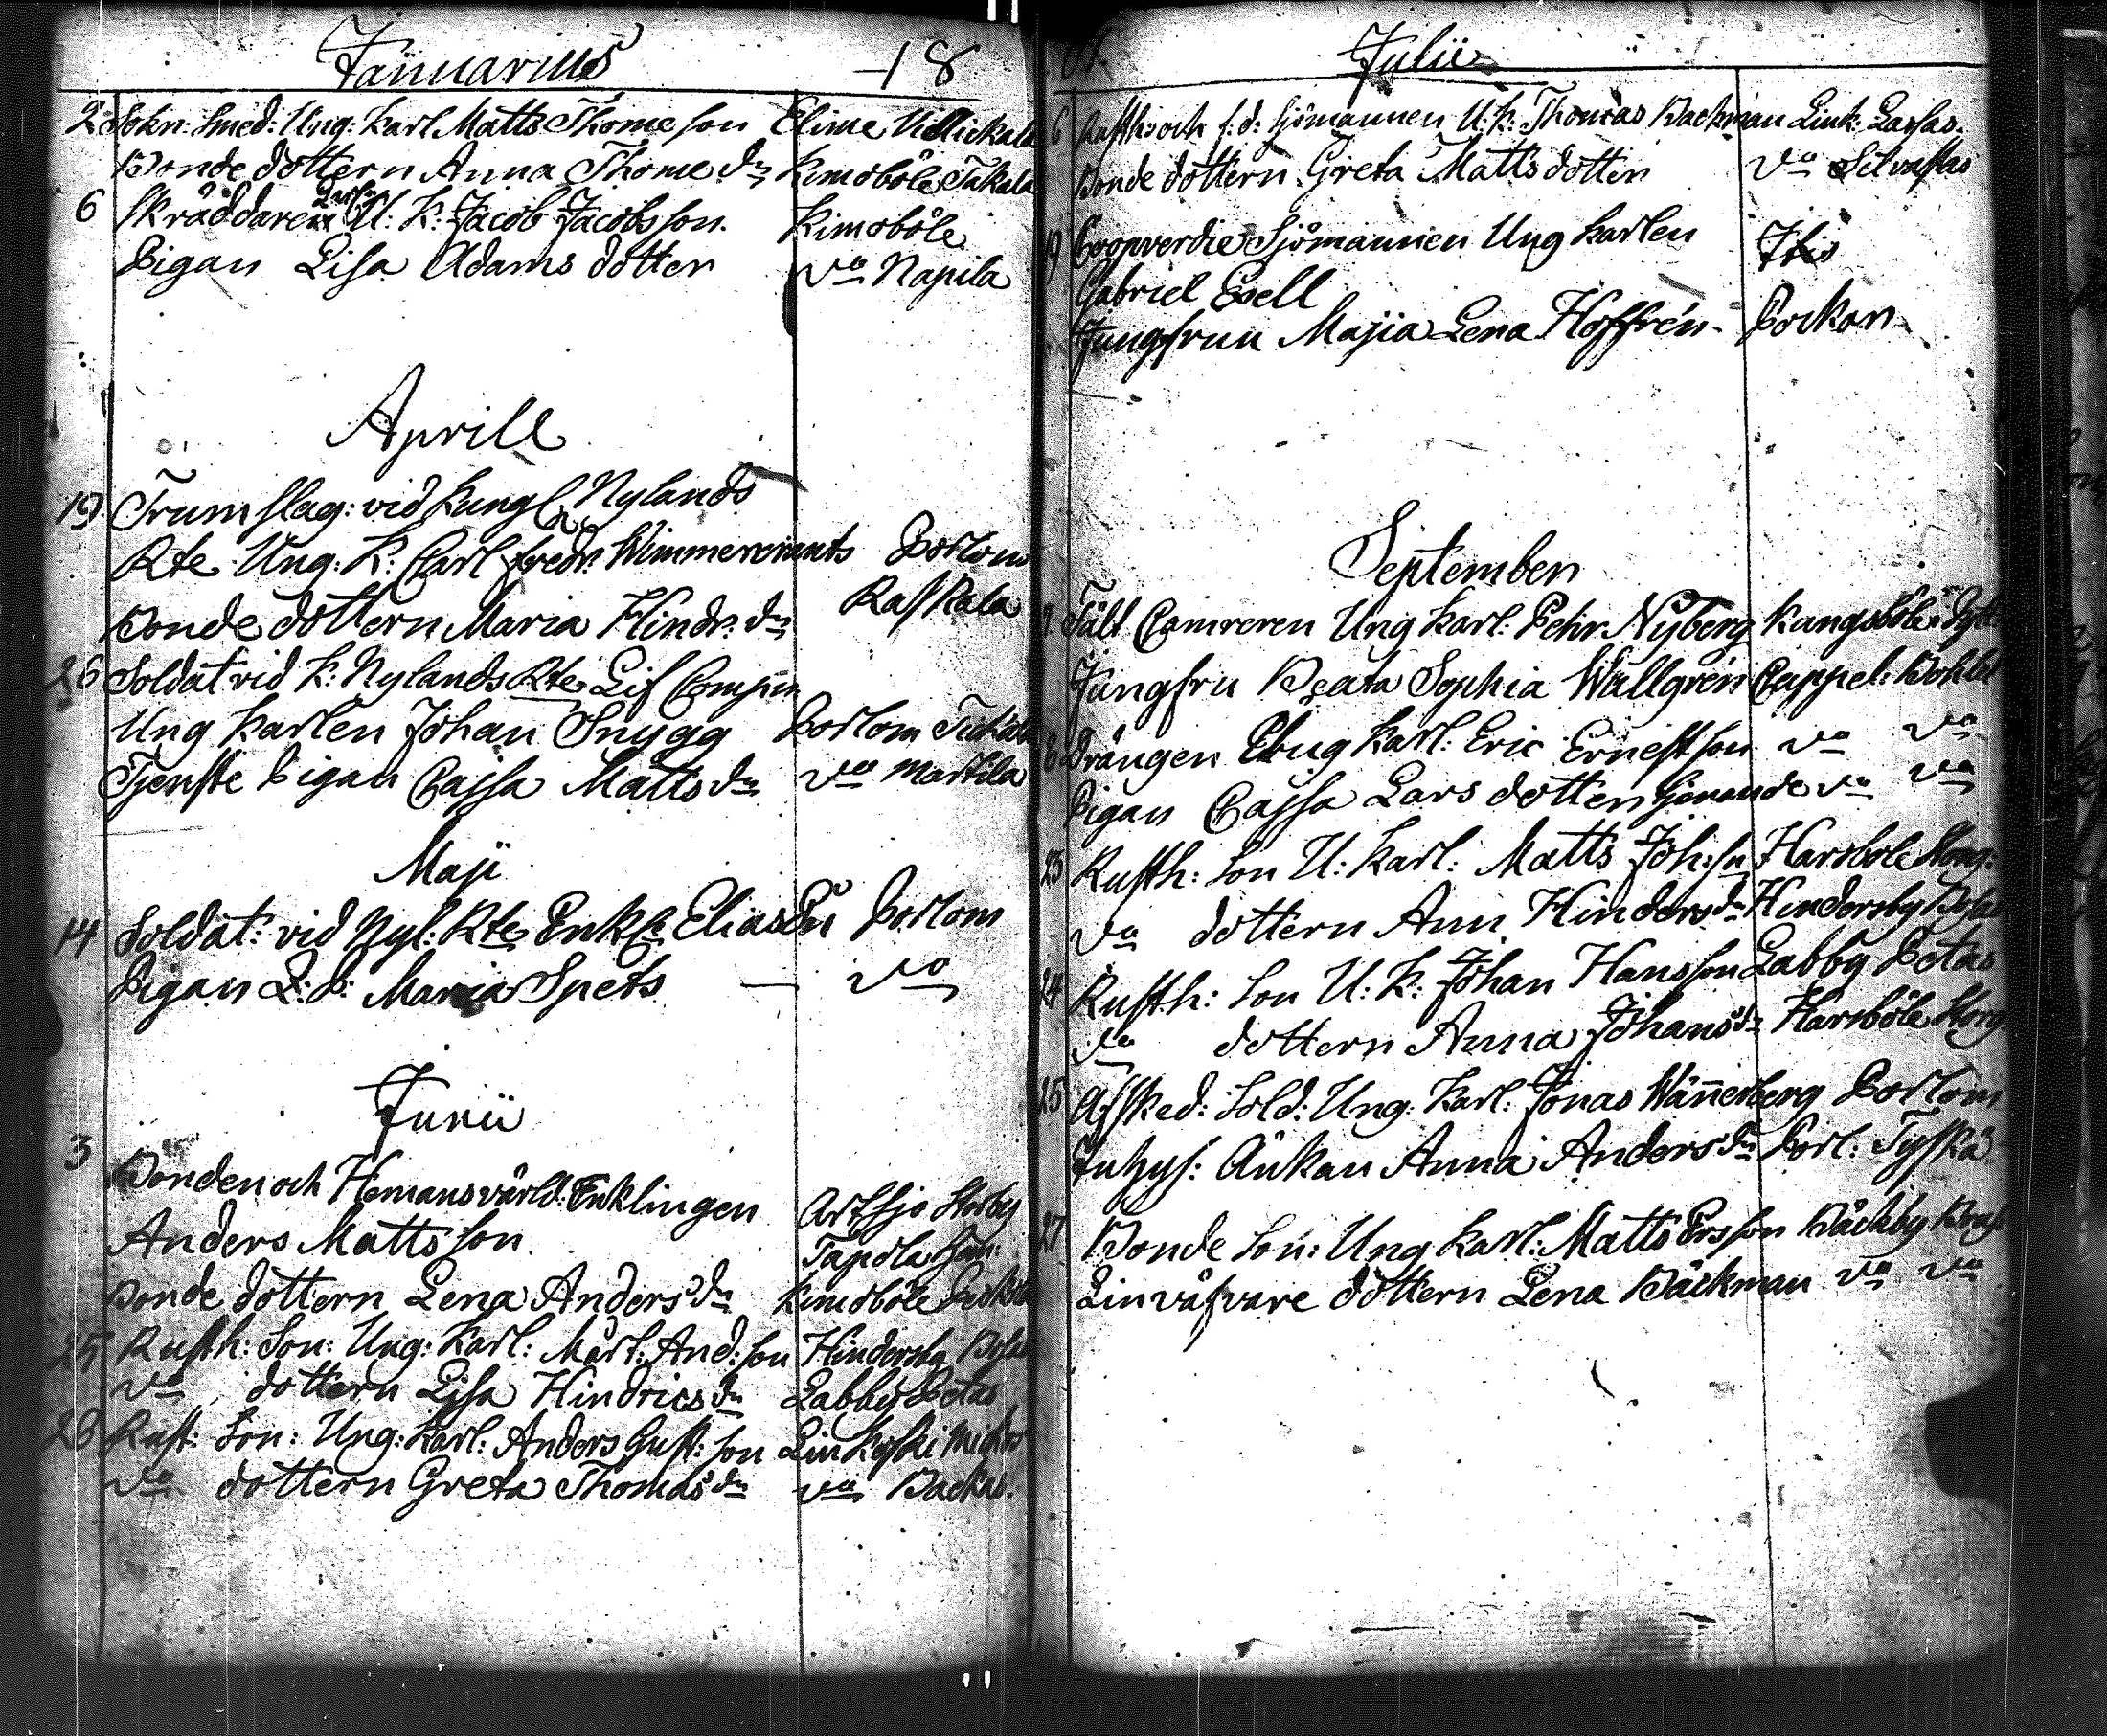 Januarius 18
2 Sokn: Smed: Ung: Karl Matts Thome son Elime
Bonde dottern Anna Thome dr Kimoböle Takala
6 Skräddaren U: K: Jacob Jacobsson. Kimoböle
Pigan Lisa Adams dotter do Napila
Aprill
19 Trumslag: vid Kungl Nylands
Rte Ung: K: Carl Fredr: Porlom
Bonde dottern Maria Hindr: dr Raskala
26 Soldat vid K: Nylands Rte Lif
Ung Karlen Johan Snygg Porlom
Tjenste Pigan Cajsa Matts dr do Martila
Maji
14 Soldat: vid Nyl: Rte Enkl: Elias Porlom
Pigan L: P: Maria Spets — do
Junii
3 Bonden och Hemansvärld: Enklingen Artsjo Storby
Anders Mattsson Tapola
Bonde dottern Lena Anders dr Kimoböle
25 Rusth: Son: Ung: Karl: Mårt: And: son Hindersby
do dottern Lisa Hindrics dr Labby Petas
28 Rust: Son: Ung: Karl: Anders Gust: son Linkoski
do dottern Greta Thomas dr do Backas.
Julii
6 Rusth: och f: d: Sjömannen U: K: Thomas Backman Link: Lassas.
Bonde dottern Greta Matts dotter do Silvastas
19 Coopverdie Sjömannen Ung Karlen
Gabriel Exell
Jungfruu Majia Lena Hoffrén
September
7. Fält Camreren Ung Karl: Pehr Nyberg Kungsböle
Jungfru Beata Sophia Wallgren Cappel:
8 Drängen Ung Karl: Eric Ernestson do do
Pigan Cajsa Lars dotter do do
23 Rusth: Son U: Karl: Matts Joh: sn Harsböle
do dottern Ann Hinders dr Hindersby
24 Rusth: Son U: K: Johan Hansson Labby Petas
do dottern Anna Johans dr Harsböle
25 Afsked: Sold: Ung: Karl: Jonas Wännerberg Porlom
Inhys: Änkan Anna Anders dr Porl:
27 Bonde Son: Ung Karl: Matts Ersson Bäckby
Linväfvare dottern Lena Bäckman do do